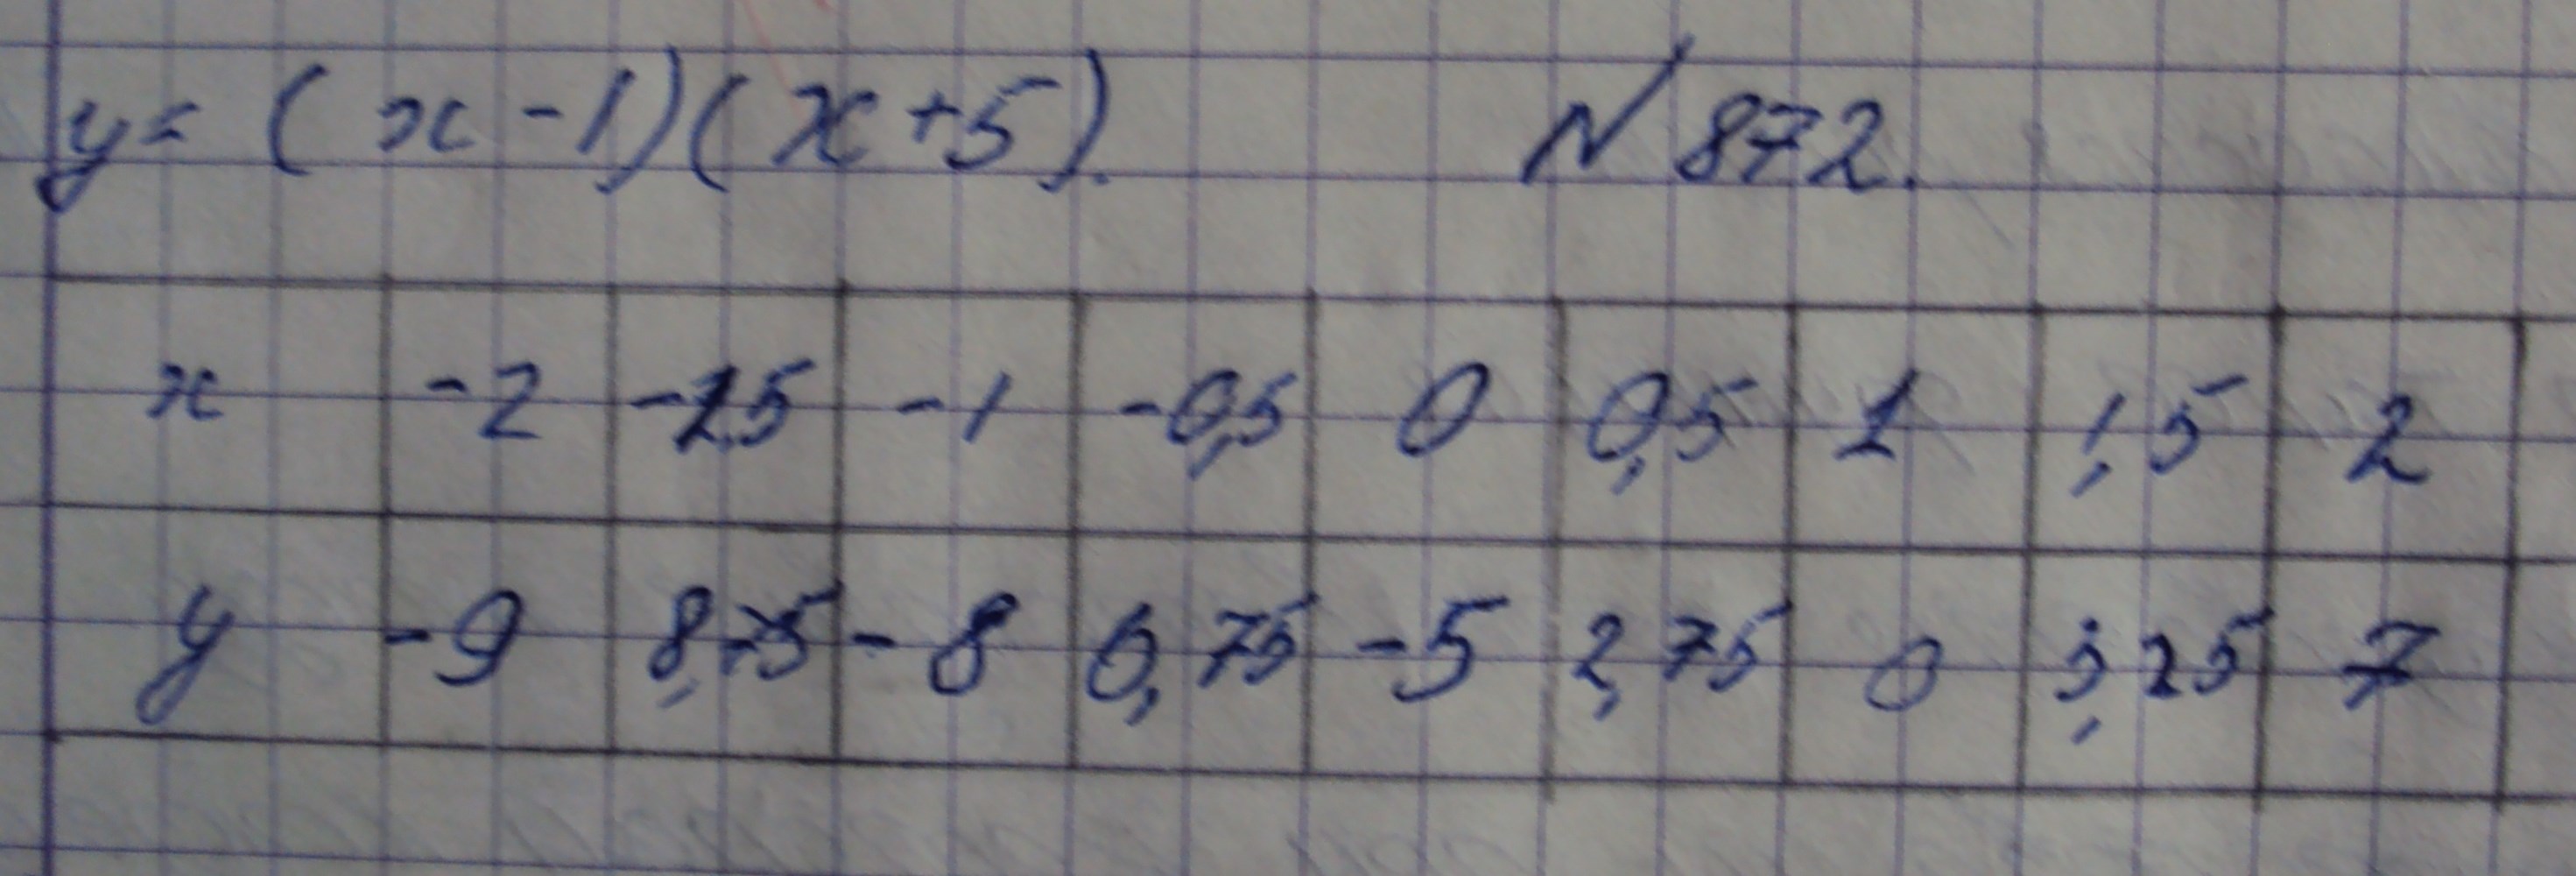 y = (x - 1)(x + 5). № 872.
x -2 -1,5 -1 -0,5 0 0,5 1 1,5 2
y -9 8,75 -8 6,75 -5 2,75 0 3,25 7